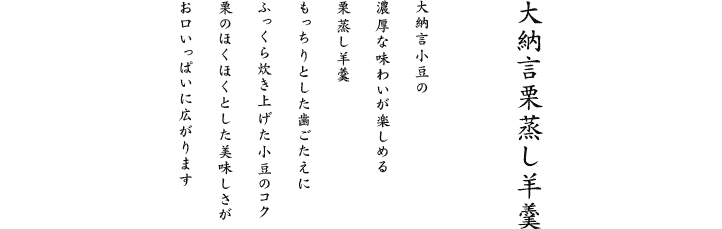 大納言栗蒸し羊羹
大納言小豆の
濃厚な味わいが楽しめる
栗蒸し羊羹
もっちりとした歯ごたえに
ふっくら炊き上げた小豆のコク
栗のほくほくとした美味しさが
お口いっぱいに広がります